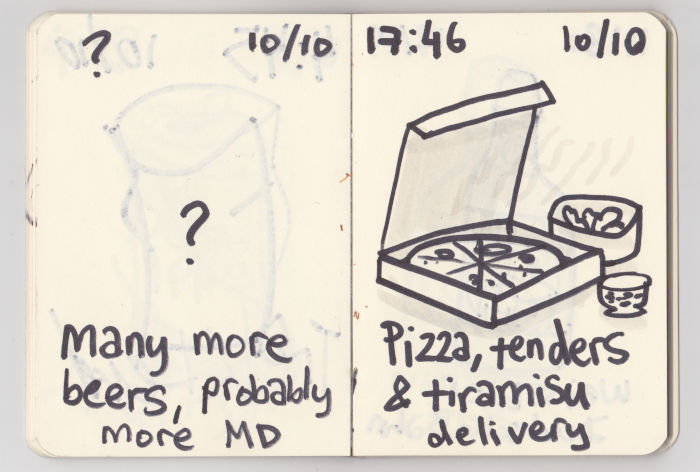 ? 10/10
?
Many more
beers, probably
more MD
17:46 10/10
Pizza, tenders
& tiramisu
delivery